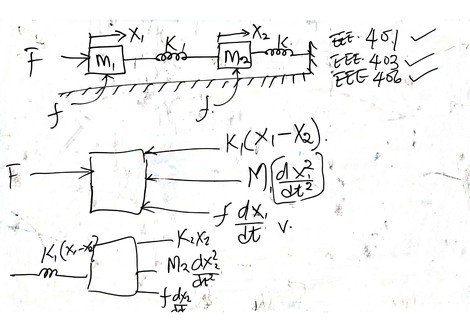 X₁ X₂
F M₁ K₁ M₂ K
f f
EEE 401 ✓
EEE 403 ✓
EEE 406 ✓
K₁(X₁-X₂).
F M₁ d x₁² / dt²
f dx₁ / dt v.
K₁(X₁-X₂) K₂X₂
M₂ dx₂² / dt²
f dx₂ / dt